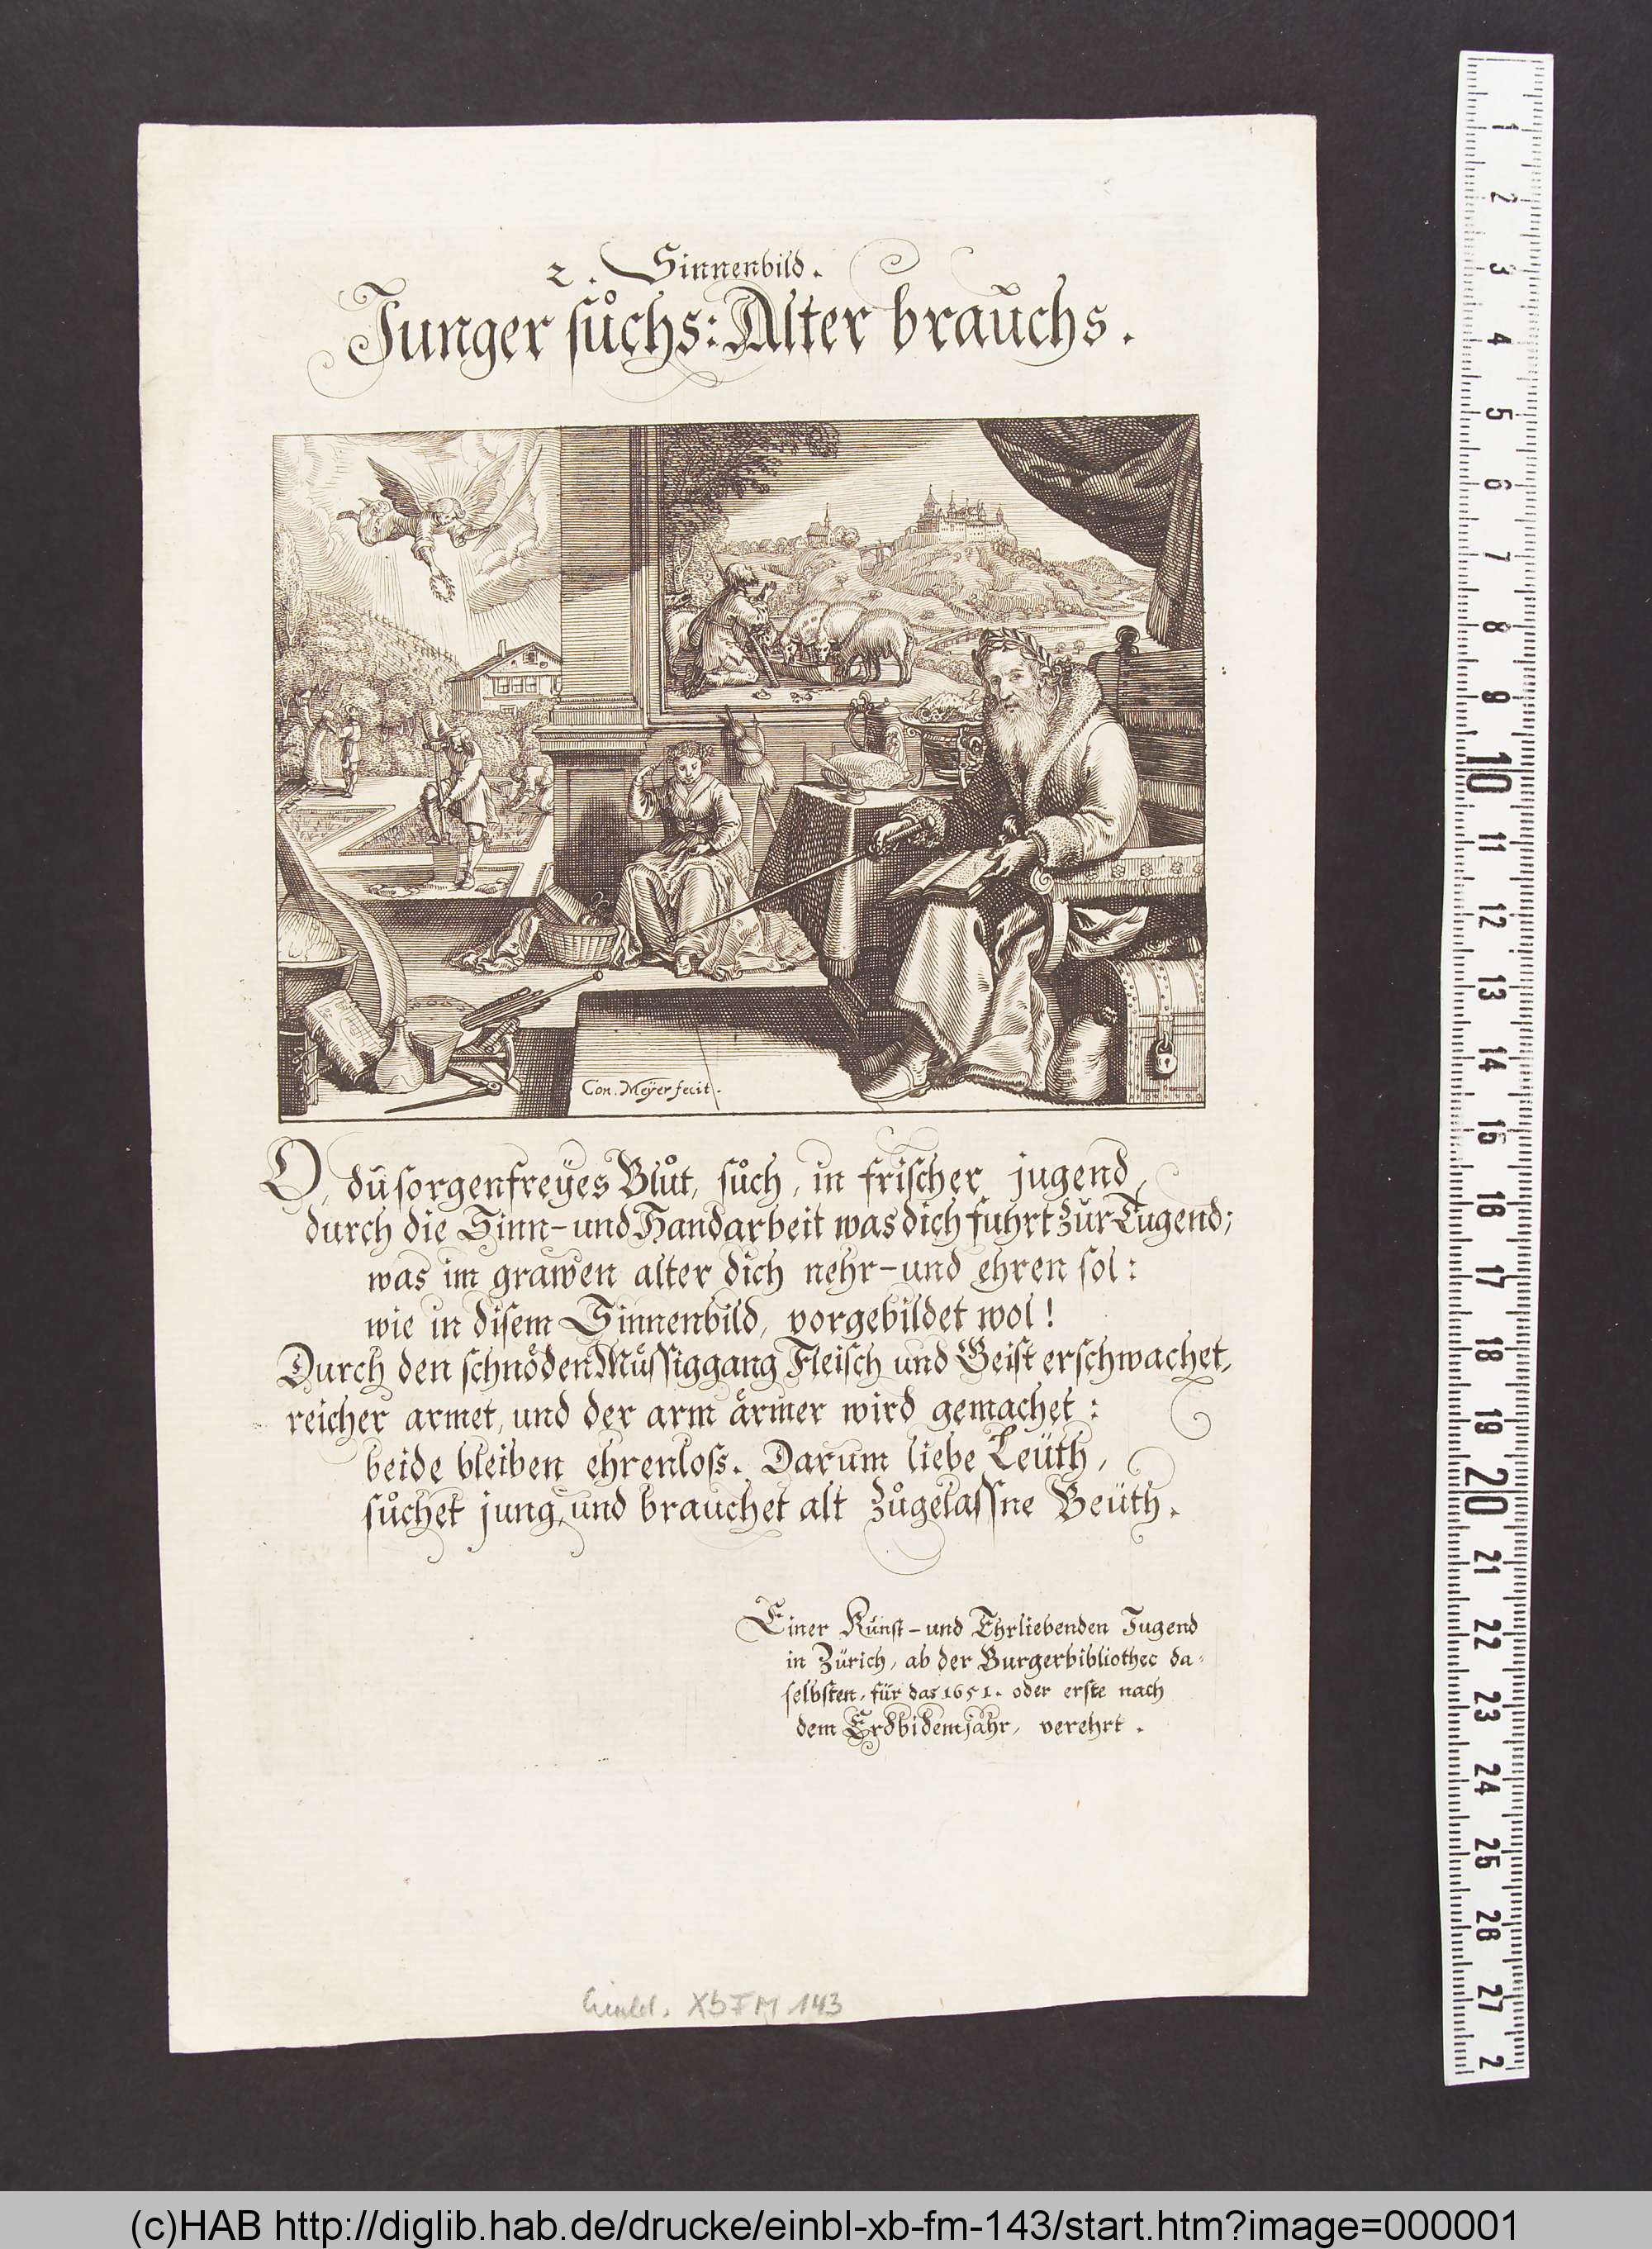 2. Sinnenbild.
Junger sůchs: Alter braŭchs.
Con. Meÿer fecit.
O, dŭ sorgenfreÿes Blůt, sůch, in frischer jugend,
durch die Sinn- und Handarbeit was dich fuhrt zŭr Tugend;
was im grawen alter dich nehr- und ehren sol:
wie in disem Sinnenbild, vorgebildet wol!
Durch den schnöden Můssiggang Fleisch und Geist erschwachet,
reicher armet, und der arm ärmer wird gemachet:
beide bleiben ehrenloss. Darum liebe Leüth,
sůchet jung, und brauchet alt zůgelassne Beüth.
Einer Kunst- und Ehrliebenden Jugend
in Zürich, ab der Burgerbibliothec da-
selbsten, für das 1651. oder erste nach
dem Erdbidemjahr, verehrt.
Xb FM 143
1
2
3
4
5
6
7
8
9
10
11
12
13
14
15
16
17
18
19
20
21
22
23
24
25
26
27
2
(c)HAB http://diglib.hab.de/drucke/einbl-xb-fm-143/start.htm?image=000001